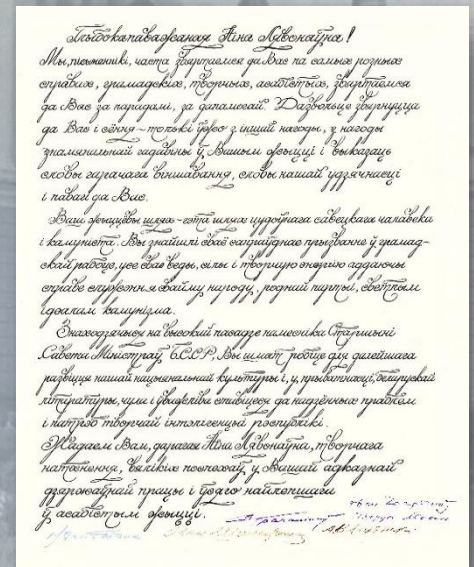 Глыбокапаважаная Ніна Лявонаўна!
Мы, пісьменнікі, часта звяртаемся да Вас па самых розных
справах, грамадскіх, творчых, асабістых, звяртаемся
да Вас за парадамі, за дапамогай. Дазвольце звярнуцца
да Вас і сёння – толькі ўжо з іншай нагоды, з нагоды
знамянальнай гадавіны ў Вашым жыцці і выказаць
словы гарачага віншавання, словы нашай удзячнасці
і павагі да Вас.
Ваш жыццёвы шлях – гэта шлях цудоўнага савецкага чалавека
і камуніста. Вы знайшлі сваё сапраўднае прызванне ў грамад-
скай рабоце, усе свае веды, сілы і творчую энергію аддаючы
справе служэння свайму народу, роднай партыі, светлым
ідэалам камунізма.
Знаходзячыся на высокай пасадзе намесніка Старшыні
Савета Міністраў БССР, Вы шмат робіце для далейшага
развіцця нашай нацыянальнай культуры і, у прыватнасці, беларускай
літаратуры, чула і ўважліва ставіцеся да надзённых праблем
і патрэб творчай інтэлігенцыі рэспублікі.
Жадаем Вам, дарагая Ніна Лявонаўна, творчага
натхнення, вялікіх поспехаў у Вашай адказнай
дзяржаўнай працы і ўсяго найлепшага
ў асабістым жыцці.